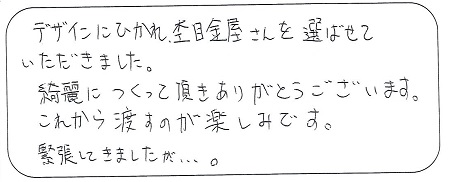 デザインにひかれ、杢目金屋さんを選ばせて
いただきました。
綺麗につくって頂きありがとうございます。
これから渡すのが楽しみです。
緊張してきましたが…。